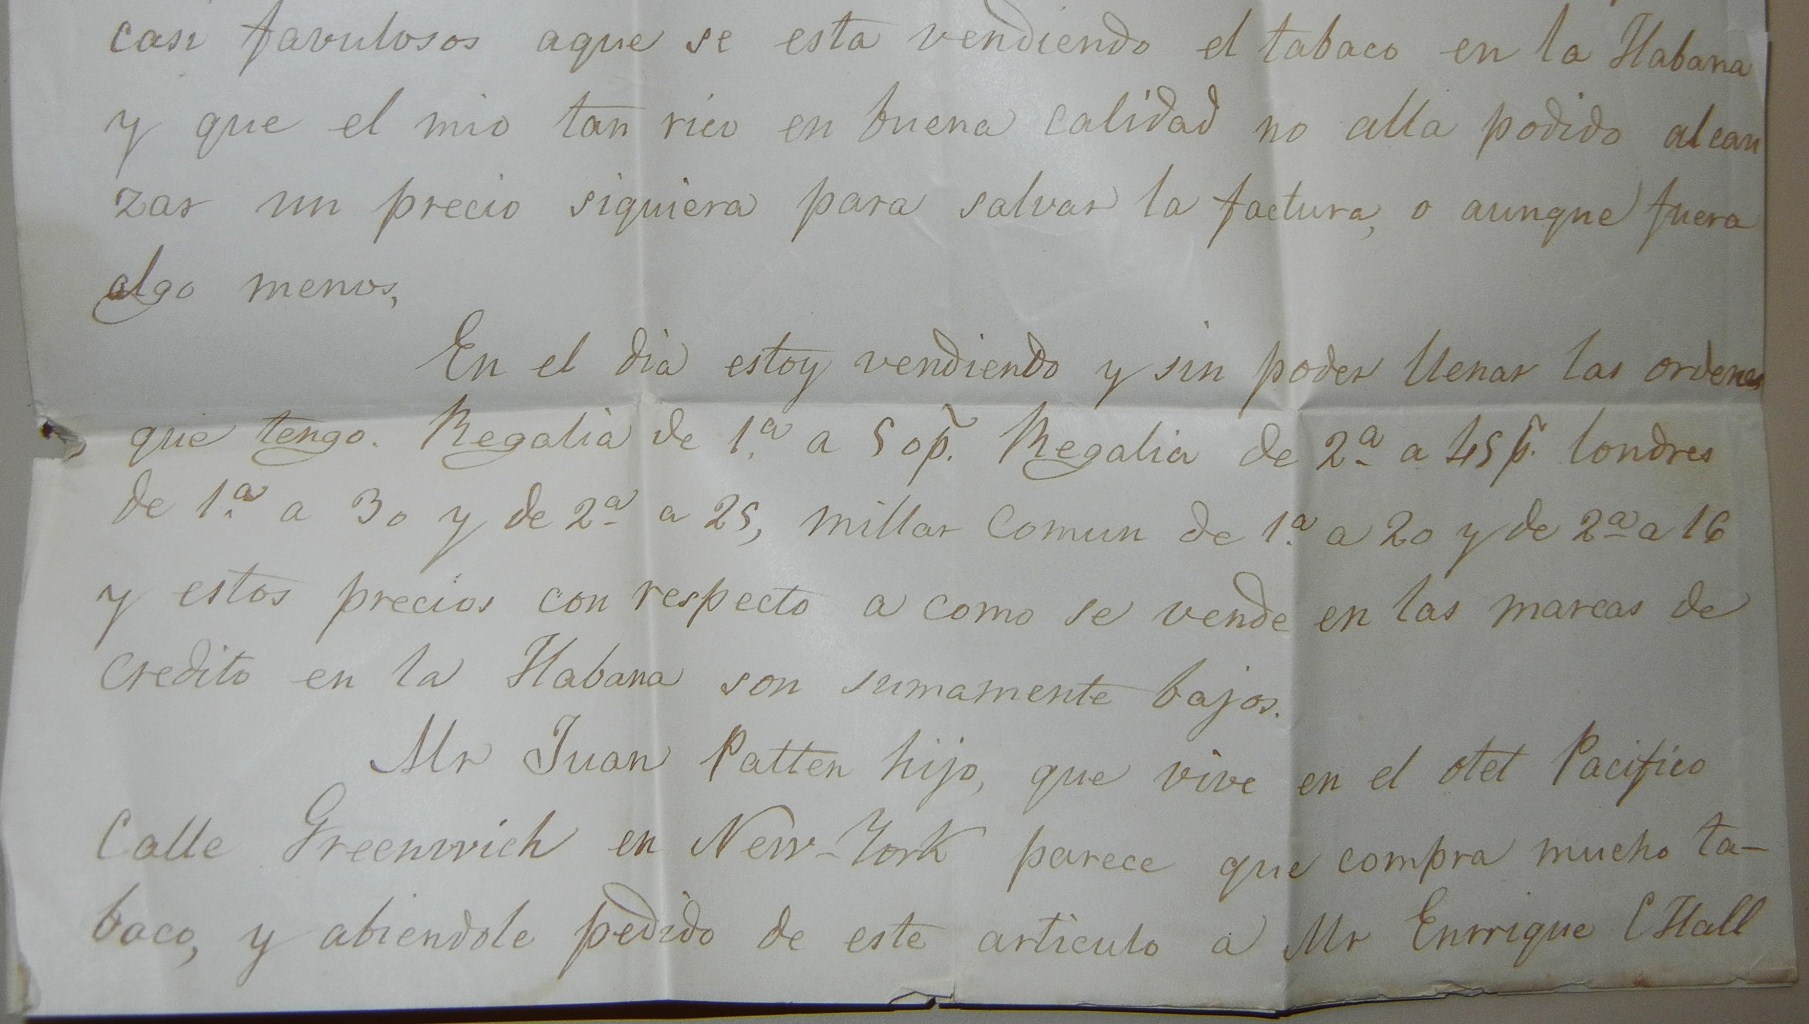 casi favulosos aque se esta vendiendo el tabaco en la Habana
y que el mio tan rico en buena calidad no alla podido alcan
zar un precio siquiera para salvar la factura, o aunque fuera
algo menos,
En el dia estoy vendiendo y sin poder llenar las ordenes
que tengo. Regalia de 1.ª a 50 p̃. Regalia de 2.ª a 45 p̃. londres
de 1.ª a 30 y de 2.ª a 25, millar Comun de 1.ª a 20 y de 2.ª a 16
y estos precios con respecto a como se vende en las marcas de
credito en la Habana son sumamente bajos.
Mr Juan Patten hijo, que vive en el otel Pacifico
Calle Greenwich en New-York parece que compra mucho ta-
baco, y abiendole pedido de este articulo a Mr Enrrique C Hall